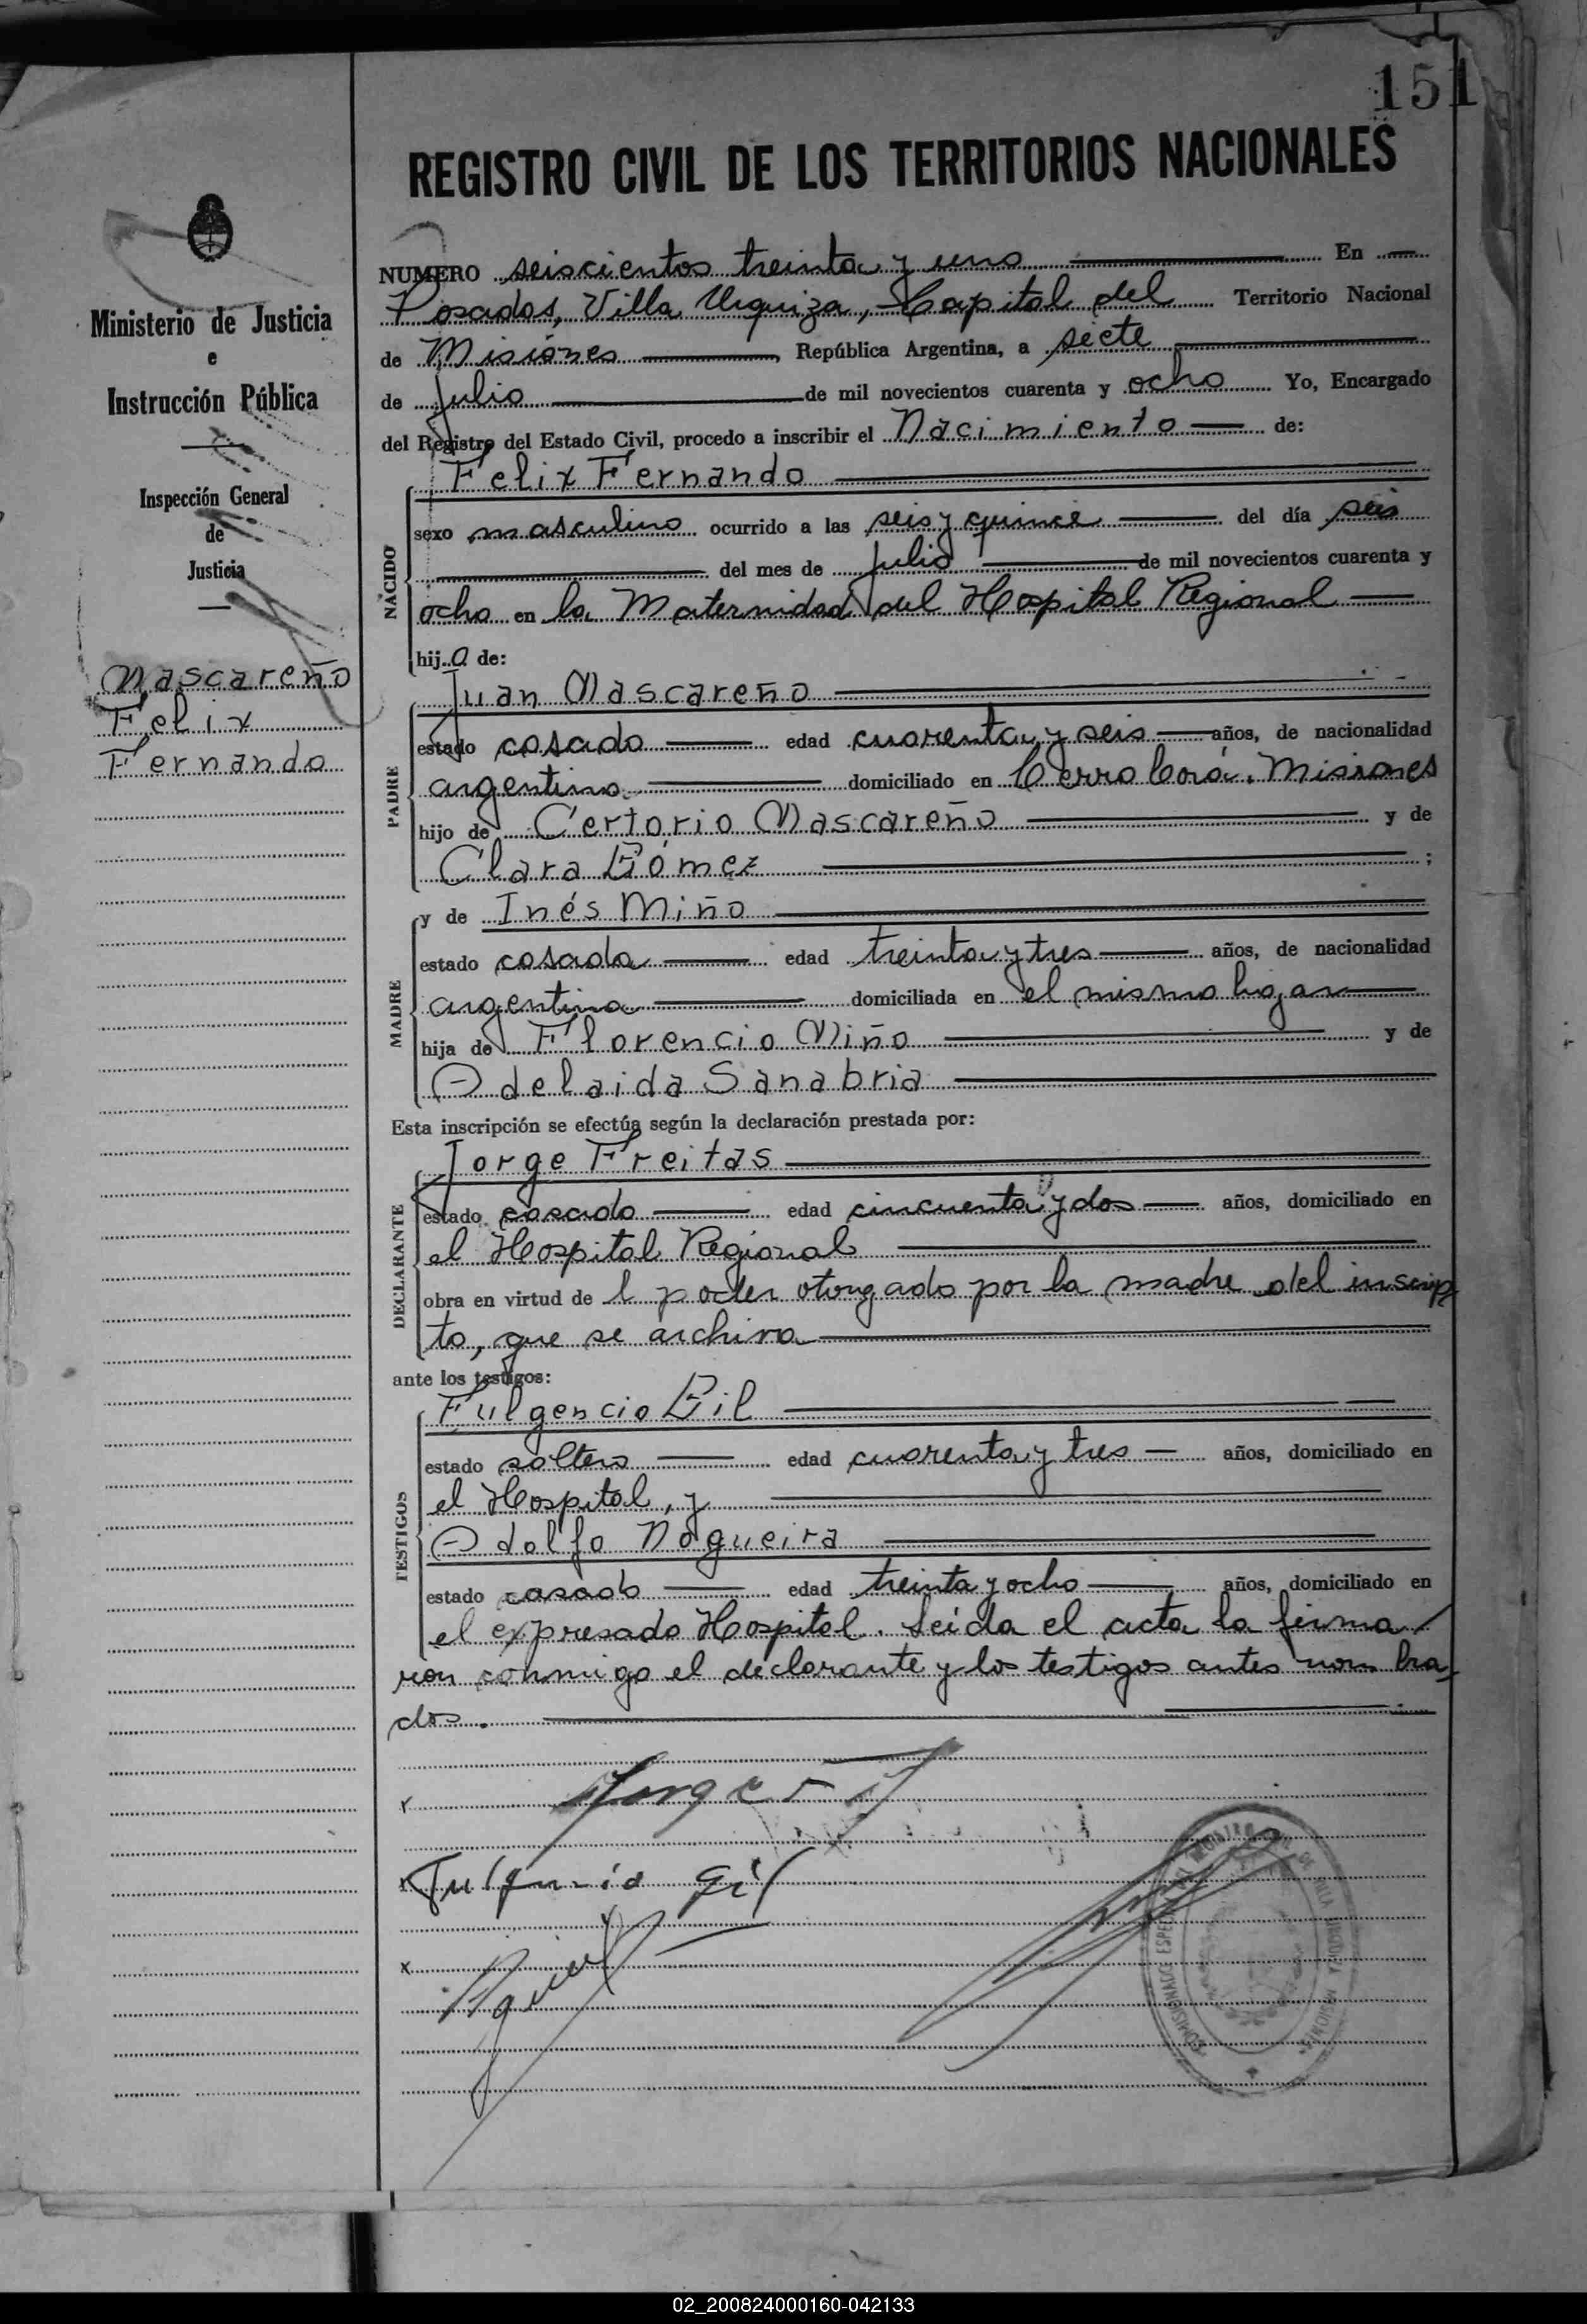 151
REGISTRO CIVIL DE LOS TERRITORIOS NACIONALES
Ministerio de Justicia
e
Instrucción Pública
Inspección General
de
Justicia
Mascareño
Felix
Fernando
NUMERO seiscientos treinta y uno En
Posadas, Villa Urquiza, Capital del Territorio Nacional
de Misiones, República Argentina, a siete
de julio de mil novecientos cuarenta y ocho Yo, Encargado
del Registro del Estado Civil, procedo a inscribir el Nacimiento de:
NACIDO
Felix Fernando
sexo masculino ocurrido a las seis y quince del día seis
del mes de julio de mil novecientos cuarenta y
ocho en la Maternidad del Hospital Regional
hijo de:
PADRE
Juan Mascareño
estado casado edad cuarenta y seis años, de nacionalidad
argentino domiciliado en Cerro Corá. Misiones
hijo de Certorio Mascareño y de
Clara Gómez ;
MADRE
y de Inés Miño
estado casada edad treinta y tres años, de nacionalidad
argentina domiciliada en el mismo hogar
hija de Florencio Miño y de
Adelaida Sanabria
Esta inscripción se efectúa según la declaración prestada por:
DECLARANTE
Jorge Freitas
estado casado edad cincuenta y dos años, domiciliado en
el Hospital Regional
obra en virtud de l poder otorgado por la madre del inscrip
to, que se archiva
ante los testigos:
TESTIGOS
Fulgencio Gil
estado soltero edad cuarenta y tres años, domiciliado en
el Hospital, y
Adolfo Nogueira
estado casado edad treinta y ocho años, domiciliado en
el expresado Hospital. Leida el acta la firma
ron conmigo el declarante y los testigos antes nombra
dos.
Jorge
Fulgencio Gil
02_200824000160-042133